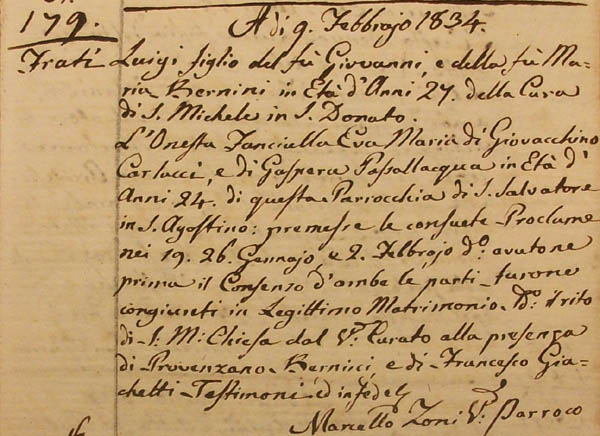 179.
A dì 9. Febbrajo 1834.
Frati Luigi figlio del fù Giovanni, e della fù Ma=
ria Bernini in Età d'Anni 27. della Cura
di S. Michele in S. Donato.
L'Onesta Fanciulla Eva Maria di Giovacchino
Carlucci, e di Gaspera Passallacqua in Età d'
Anni 24. di questa Parrocchia di S. Salvatore
in S. Agostino: premesse le consuete Proclame
nei 19. 26. Gennajo, e 2. Febbrajo d.º avutone
prima il Consenso d'ambe le parti furone
congiunti in Legittimo Matrimonio il rito
di S. M. Chiesa dal V. Curato alla presenza
di Provenzano Bernini, e di Francesco Gia=
chetti Testimoni ed in fede
Marcello Zoni V. Parroco